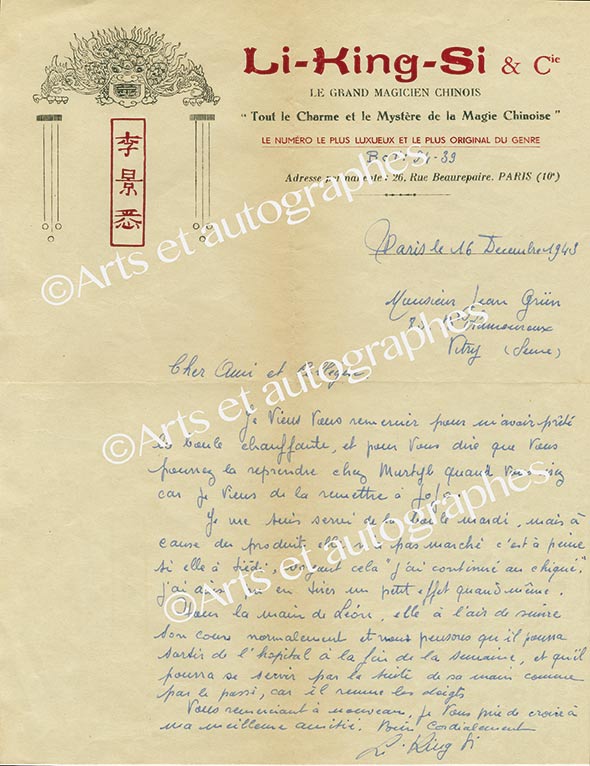 Li-King-Si & Cie
LE GRAND MAGICIEN CHINOIS
" Tout le Charme et le Mystère de la Magie Chinoise "
LE NUMÉRO LE PLUS LUXUEUX ET LE PLUS ORIGINAL DU GENRE
Bot 54-39
Adresse permanente : 26, Rue Beaurepaire, PARIS (10e)
李景悉
Paris le 16 Decembre 1943
Monsieur Jean Grün
Lamouroux
Vitry (Seine)
Cher Ami et Collègue
Je Viens Vous remercier pour m'avoir prêté
la boule chauffante, et pour Vous dire que Vous
pourrez la reprendre chez Martyl quand
car je Viens de la remettre à
Je me suis servi de la boule mardi, mais à
cause du produit elle n'a pas marché c'est à peine
si elle à tiédi, voyant cela "j'ai continué au chiqué".
j'ai ainsi pu en tirer un petit effet quand même.
Pour la main de Léon, elle à l'air de suivre
son cours normalement et nous pensons qu'il pourra
sortir de l'hopital à la fin de la semaine, et qu'il
pourra se servir par la suite de sa main comme
par le passé, car il remue les doigts
Vous remerciant à nouveau, je Vous prie de croire à
ma meilleure amitié. Bien cordialement
Li-King Si
©Arts et autographes
©Arts et autographes
©Arts et autographes